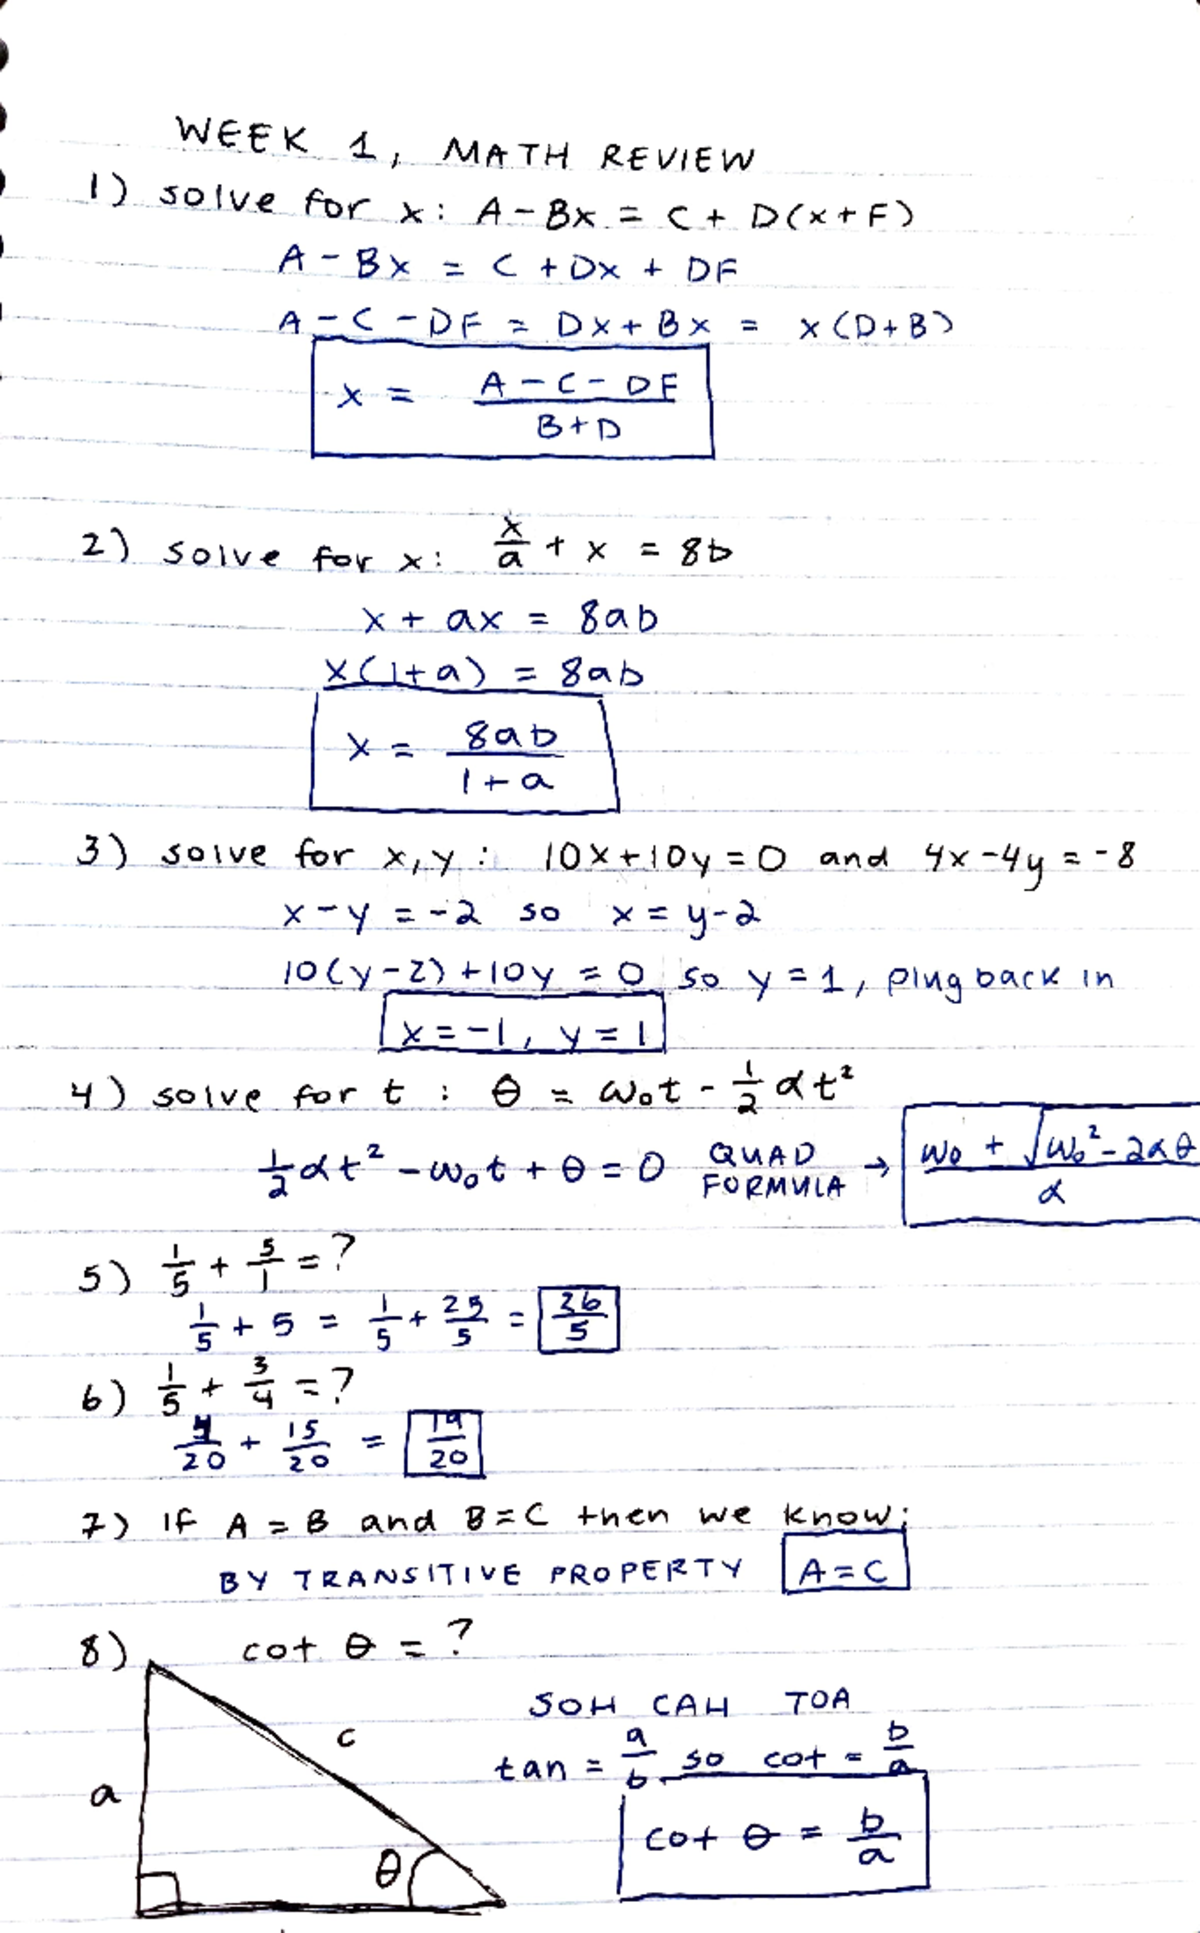 WEEK 1, MATH REVIEW
1) solve for x: A - Bx = C + D(x + F)
A - Bx = C + Dx + DF
A - C - DF = Dx + Bx = x(D + B)
x = (A - C - DF)/(B + D)
2) solve for x: x/a + x = 8b
x + ax = 8ab
x(1+a) = 8ab
x = 8ab/(1+a)
3) solve for x, y: 10x + 10y = 0 and 4x - 4y = -8
x - y = -2 so x = y - 2
10(y - 2) + 10y = 0 so y = 1, plug back in
x = -1, y = 1
4) solve for t : θ = ω₀t - 1/2 αt²
1/2 αt² - ω₀t + θ = 0 QUAD FORMULA → (ω₀ + √(ω₀² - 2αθ))/α
5) 1/5 + 5/1 = ?
1/5 + 5 = 1/5 + 25/5 = 26/5
6) 1/5 + 3/4 = ?
4/20 + 15/20 = 19/20
7) If A = B and B = C then we know:
BY TRANSITIVE PROPERTY A = C
8) cot θ = ?
SOH CAH TOA
c
tan = a/b so cot = b/a
a
cot θ = b/a
θ